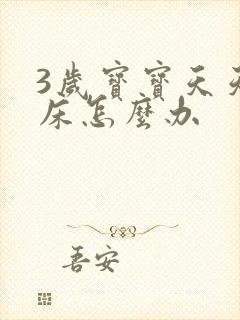 3歲寶寶天天
床怎麼办
吾安